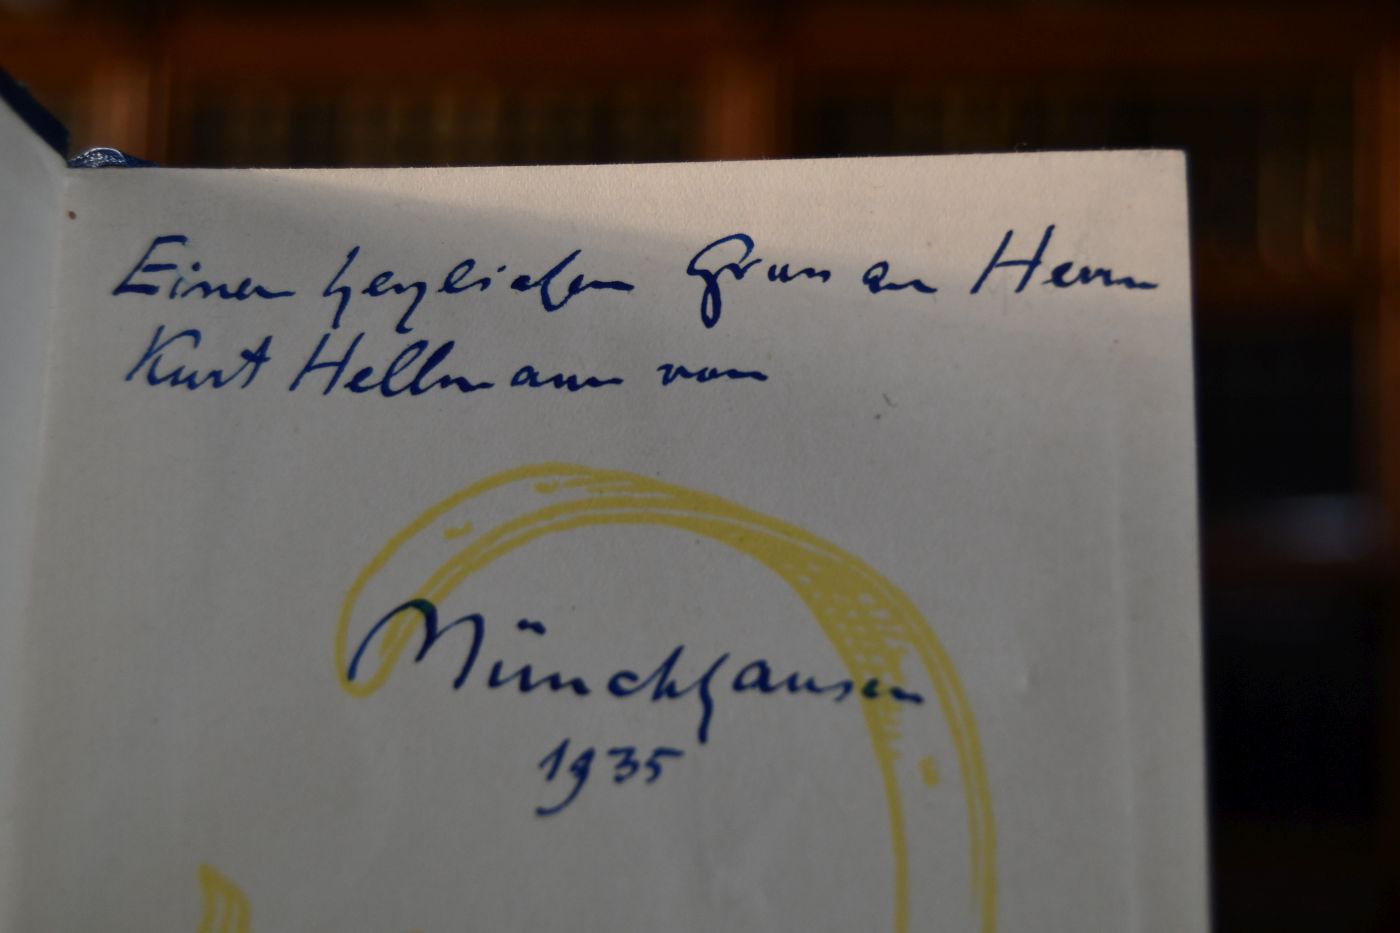 Einen herzlichen Gruss an Herrn
Kurt Hellmann von
Münchhausen
1935